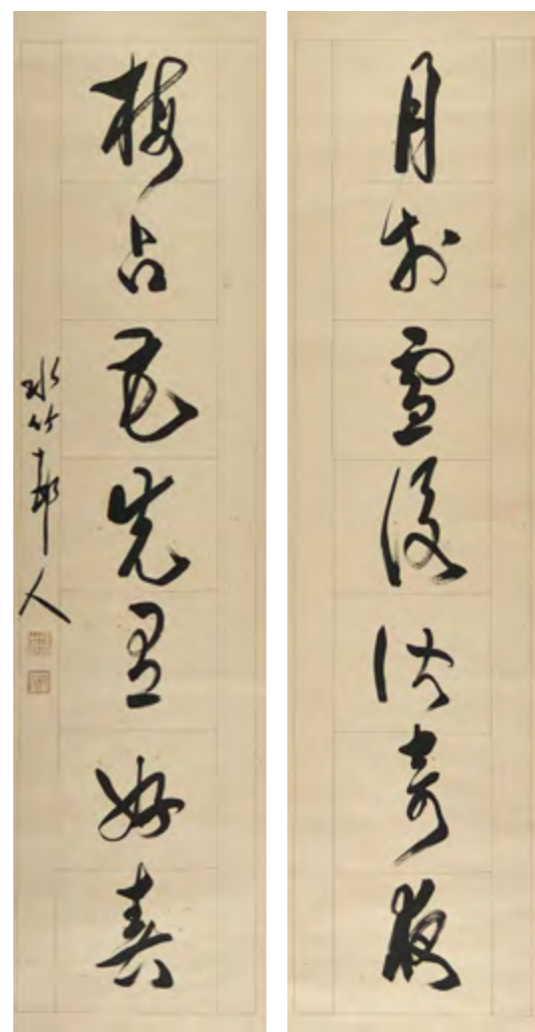 月於雪後奇夜
梅占花先好春
水竹邨人